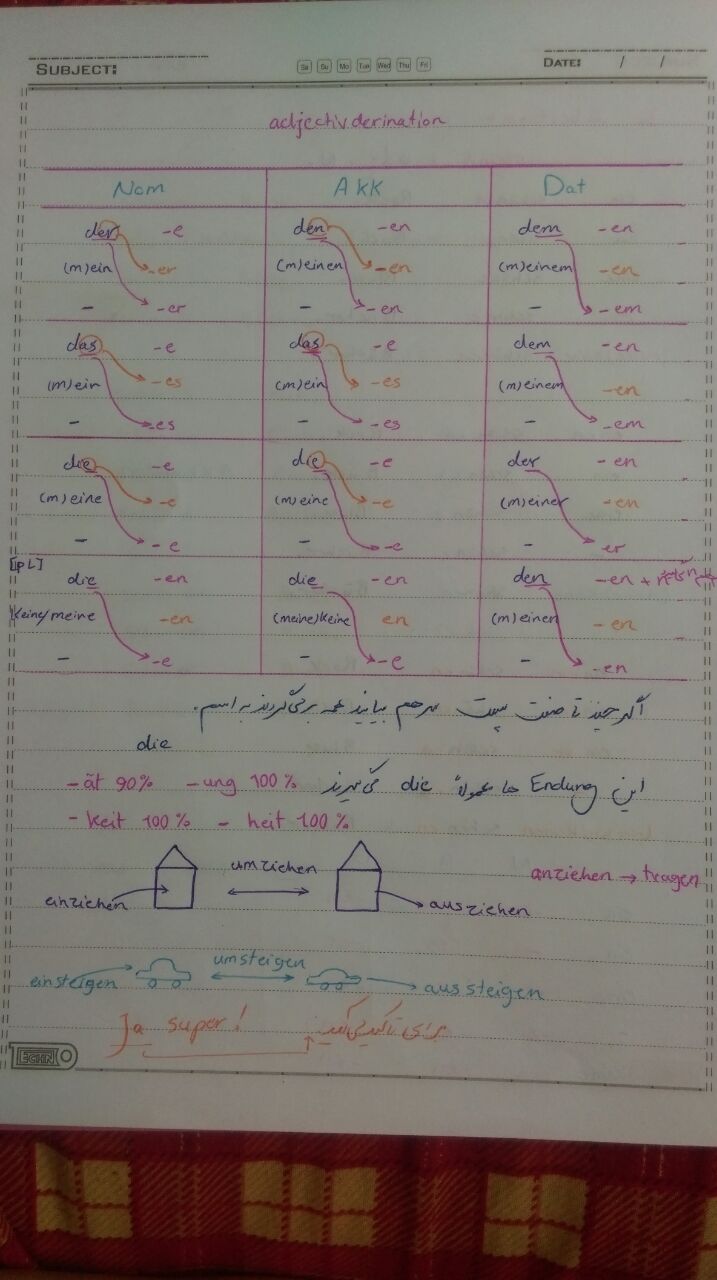 SUBJECT:
Sa Su Mo Tue Wed Thu Fri
DATE: / /
adjectivderination
Nom Akk Dat
der -e den -en dem -en
(m)ein -er (m)einen -en (m)einem -en
- -er - -en - -em
das -e das -e dem -en
(m)ein -es (m)ein -es (m)einem -en
- -es - -es - -em
die -e die -e der -en
(m)eine -e (m)eine -e (m)einer -en
- -e - -e - er
[PL]
die -en die -en den -en +
keine/meine -en (meine)keine en (m)einen -en
- -e - -e - -en
اگر چند تا صفت پشت سر هم بیایند همه برمی‌گردند به اسم.
die
این Endung ها معمولاً die می‌گیرند -ung 100% -ät 90%
-keit 100% - heit 100%
umziehen
anziehen → tragen
einziehen ausziehen
umsteigen
einsteigen aussteigen
Ja super! برای تاکید
TECHNO